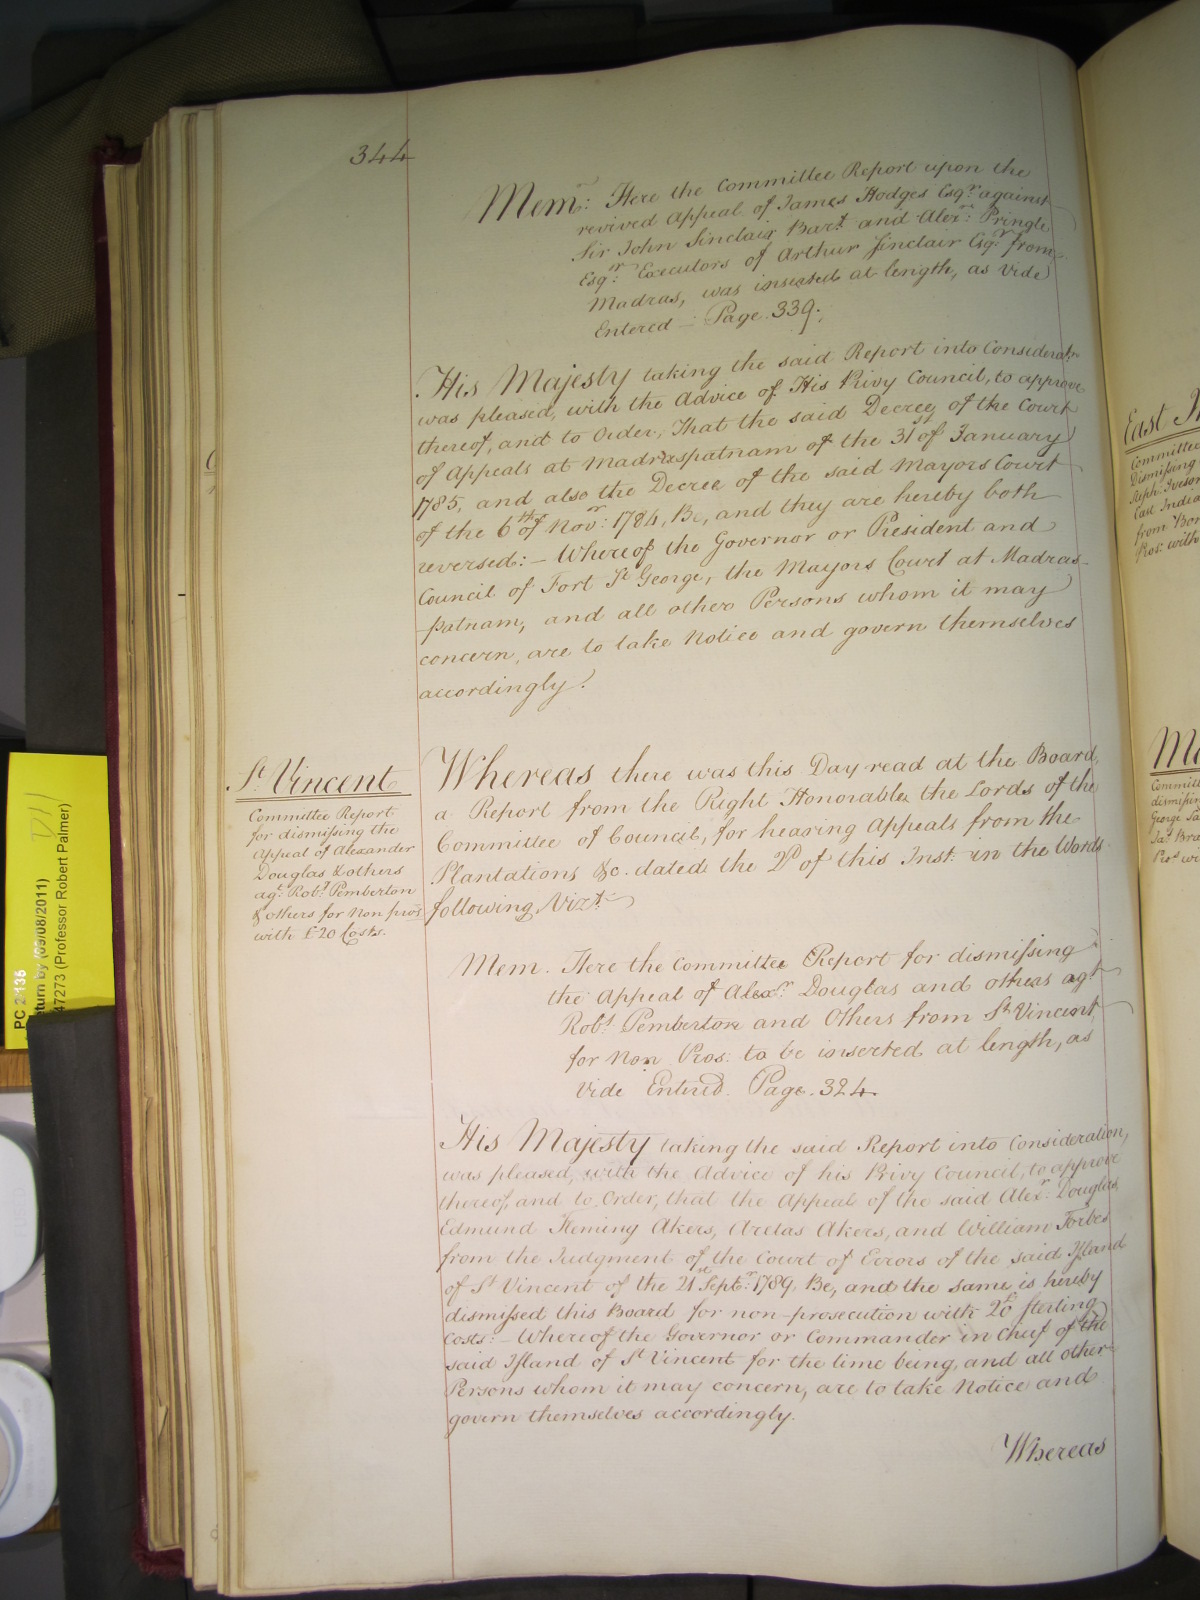 344
Memr: Here the Committee Report upon the
revived Appeal of James Hodges Esqr. against
Sir John Sinclair Bart. and Alexr: Pringle
Esqr. Executors of Arthur Sinclair Esqr. from
Madras, was inserted at length, as vide
Entered — Page. 339.
His Majesty taking the said Report into Consideratn
was pleased, with the Advice of His Privy Council, to approve
thereof, and to Order, That the said Decree of the Court
of Appeals at Madraspatnam of the 31st of January
1785, and also the Decree of the said Mayors Court
of the 6th of Novr: 1784, Be, and they are hereby both
reversed: — Whereof the Governor or President and
Council of Fort St. George, the Mayors Court at Madras-
-patnam, and all other Persons whom it may
concern, are to take Notice and govern themselves
accordingly.
St. Vincent
Committee Report
for dismissing the
Appeal of Alexander
Douglas & others
agt. Robt. Pemberton
& others for Non pros.
with £20 Costs.
Whereas there was this Day read at the Board,
a Report from the Right Honorable the Lords of the
Committee of Council, for hearing Appeals from the
Plantations &c. dated the 2d of this Inst: in the Words
following, Vizt.
Mem. Here the Committee Report for dismissing
the Appeal of Alexr. Douglas and others agt
Robt. Pemberton and Others from St. Vincent,
for Non Pros. to be inserted at length, as
vide Entered. Page. 324.
His Majesty taking the said Report into Consideration,
was pleased, with the Advice of his Privy Council, to approve
thereof, and to Order, that the Appeal of the said Alexr. Douglas,
Edmund Fleming Akers, Aretas Akers, and William Forbes
from the Judgment of the Court of Errors of the said Island
of St. Vincent of the 21st Septr: 1789, Be, and the same is hereby
dismissed this Board for non-prosecution with 20£ sterling
Costs: — Whereof the Governor or Commander in Chief of the
said Island of St. Vincent for the time being, and all other
Persons whom it may concern, are to take Notice and
govern themselves accordingly.
Whereas
PC 2/136
turn by (09/08/2011)
47273 (Professor Robert Palmer)
East
Committee
Dismissing
East India
from Bom
Pros: with
Committe
dismissing